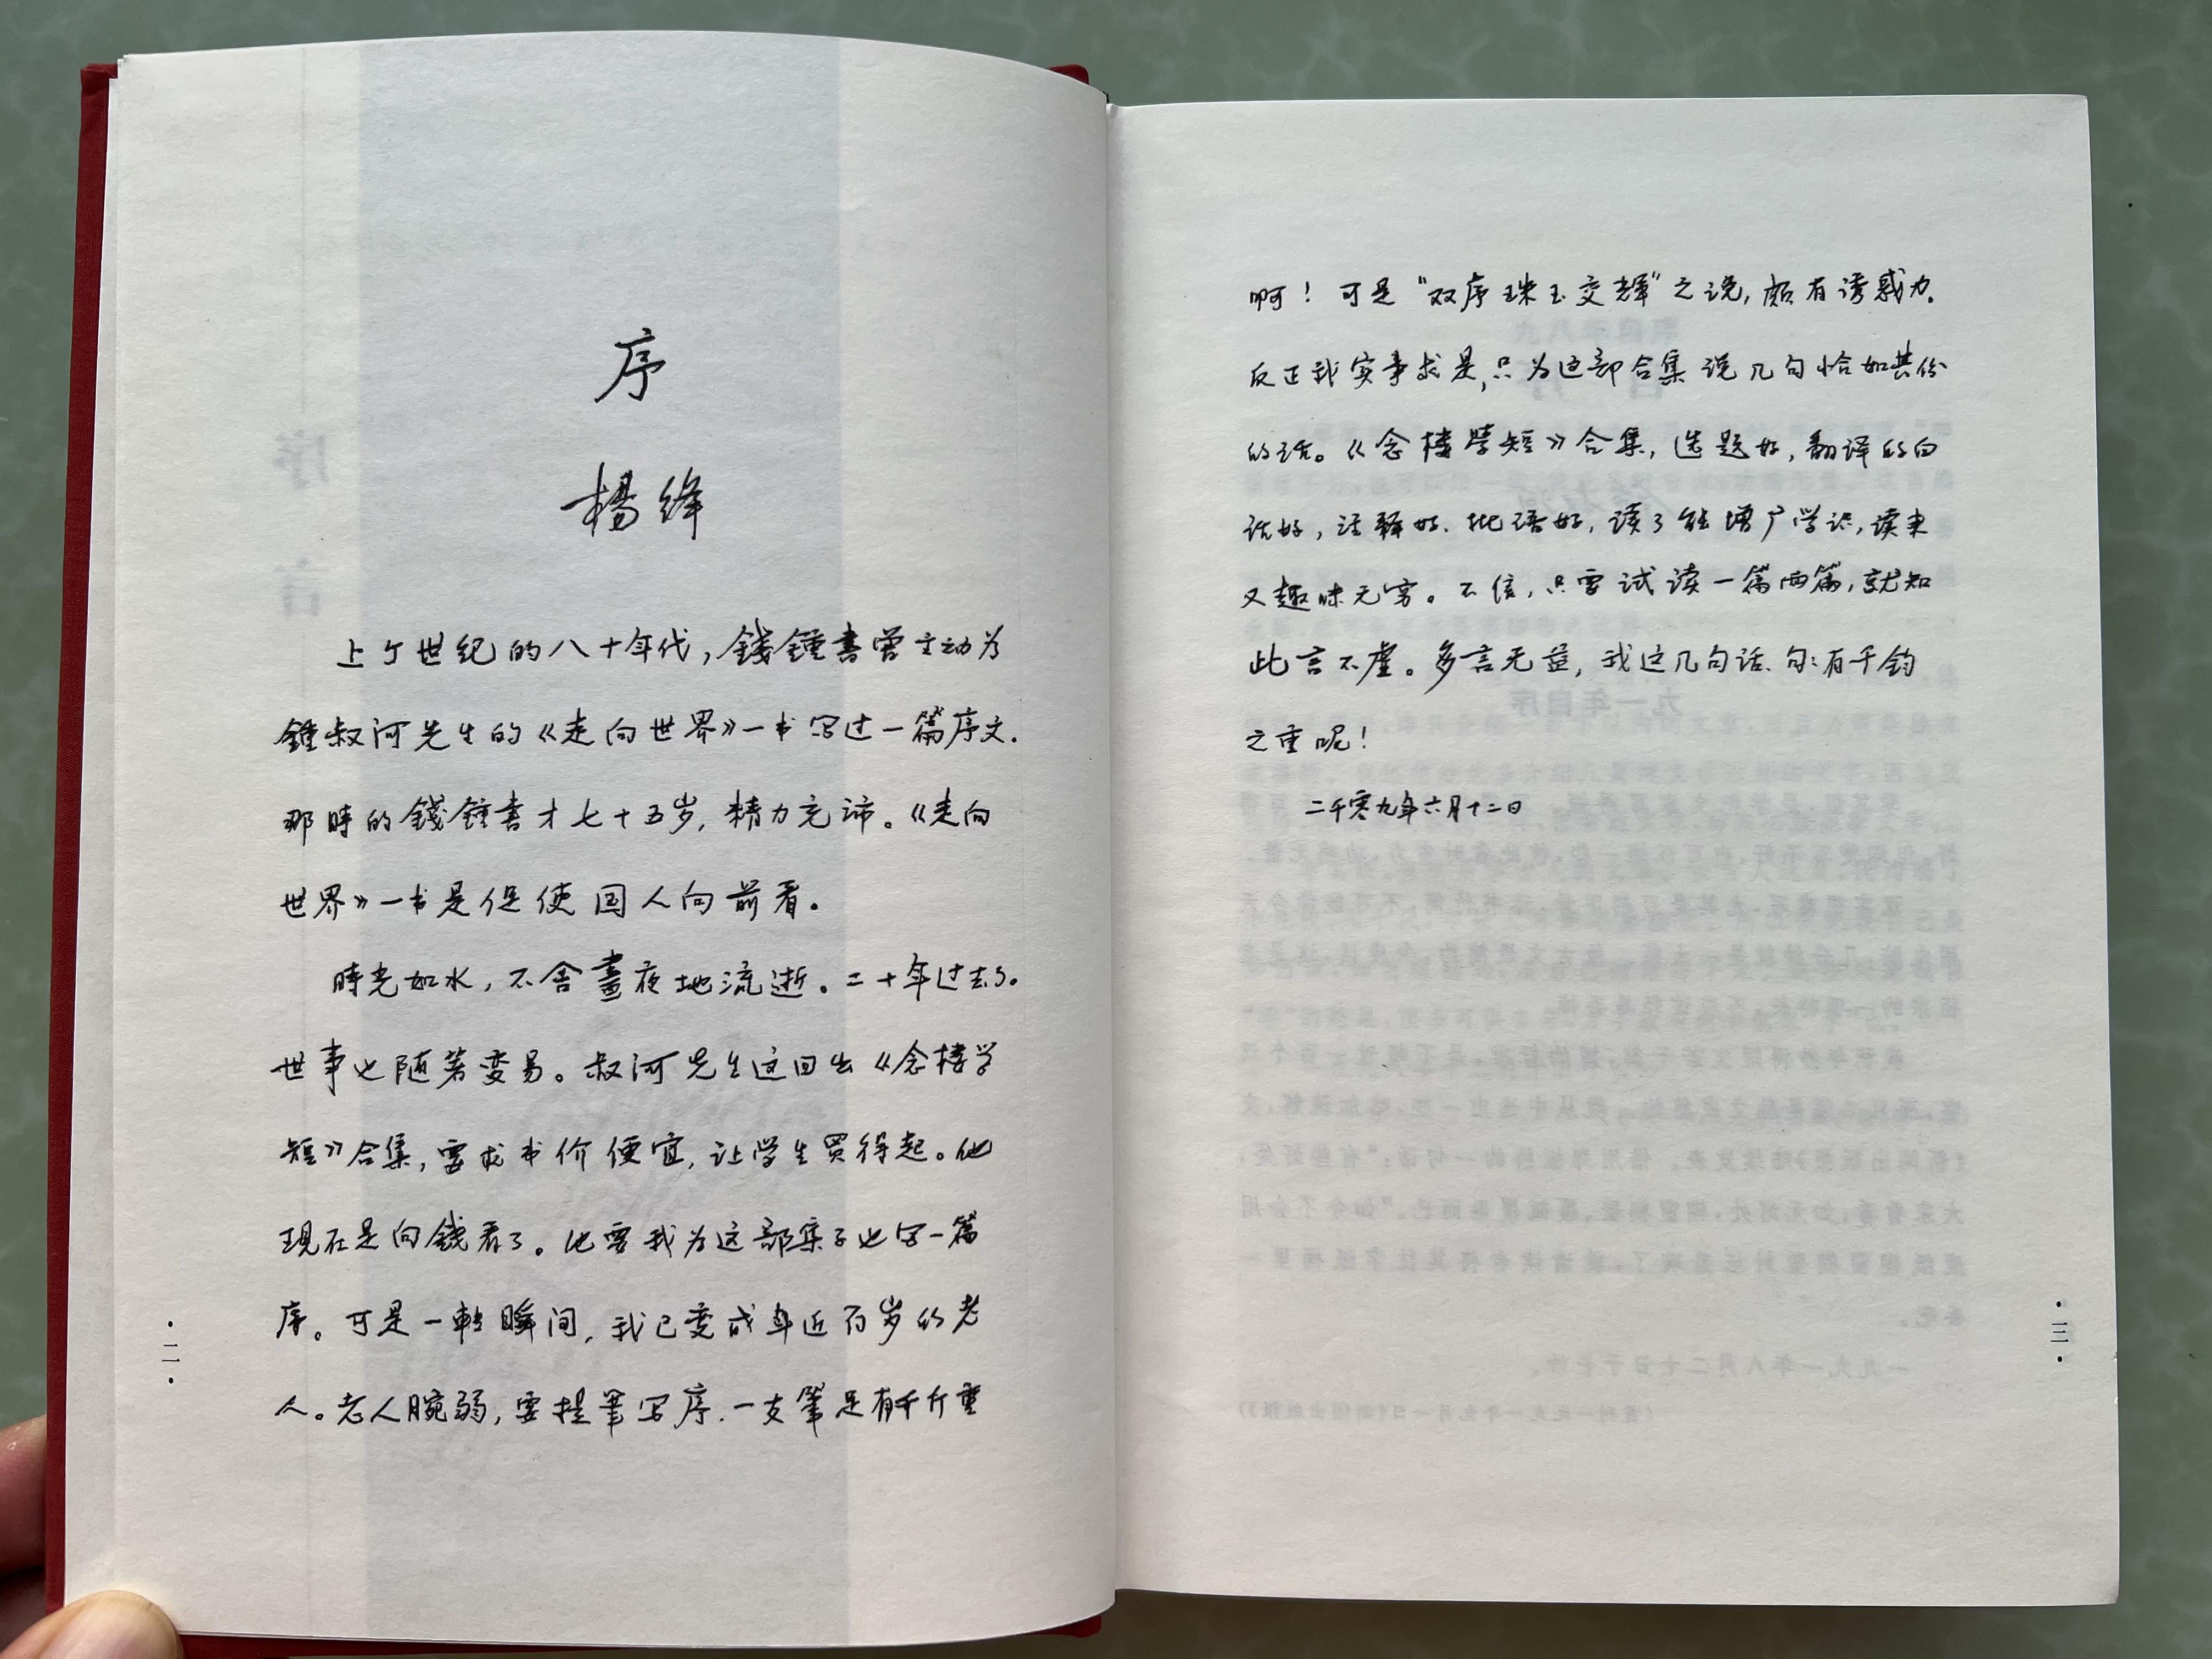 序
楊绛
上个世纪的八十年代，錢鍾書曾主动为
鍾叔河先生的《走向世界》一书写过一篇序文．
那時的錢鍾書才七十五岁，精力充沛。《走向
世界》一书是促使国人向前看。
時光如水，不舍晝夜地流逝。二十年过去了。
世事也随著变易。叔河先生这回出《念楼学
短》合集，要求书价便宜，让学生買得起。他
現在是向錢看了。他要我为这部集子也写一篇
序。可是一轉瞬间，我已变成年近百岁的老
人。老人腕弱，要提筆写序．一支筆足有千斤重
·二·
啊！可是“双序珠玉交輝”之说，頗有诱惑力．
反正我实事求是，只为这部合集说几句恰如其份
的话。《念樓學短》合集，选题好，翻译的白
话好，注釋好．批语好，读了能增广学识，读来
又趣味无穷。不信，只要试读一篇两篇，就知
此言不虚。多言无益，我这几句话、句:有千钧
之重呢！
二千零九年六月十二日
·三·